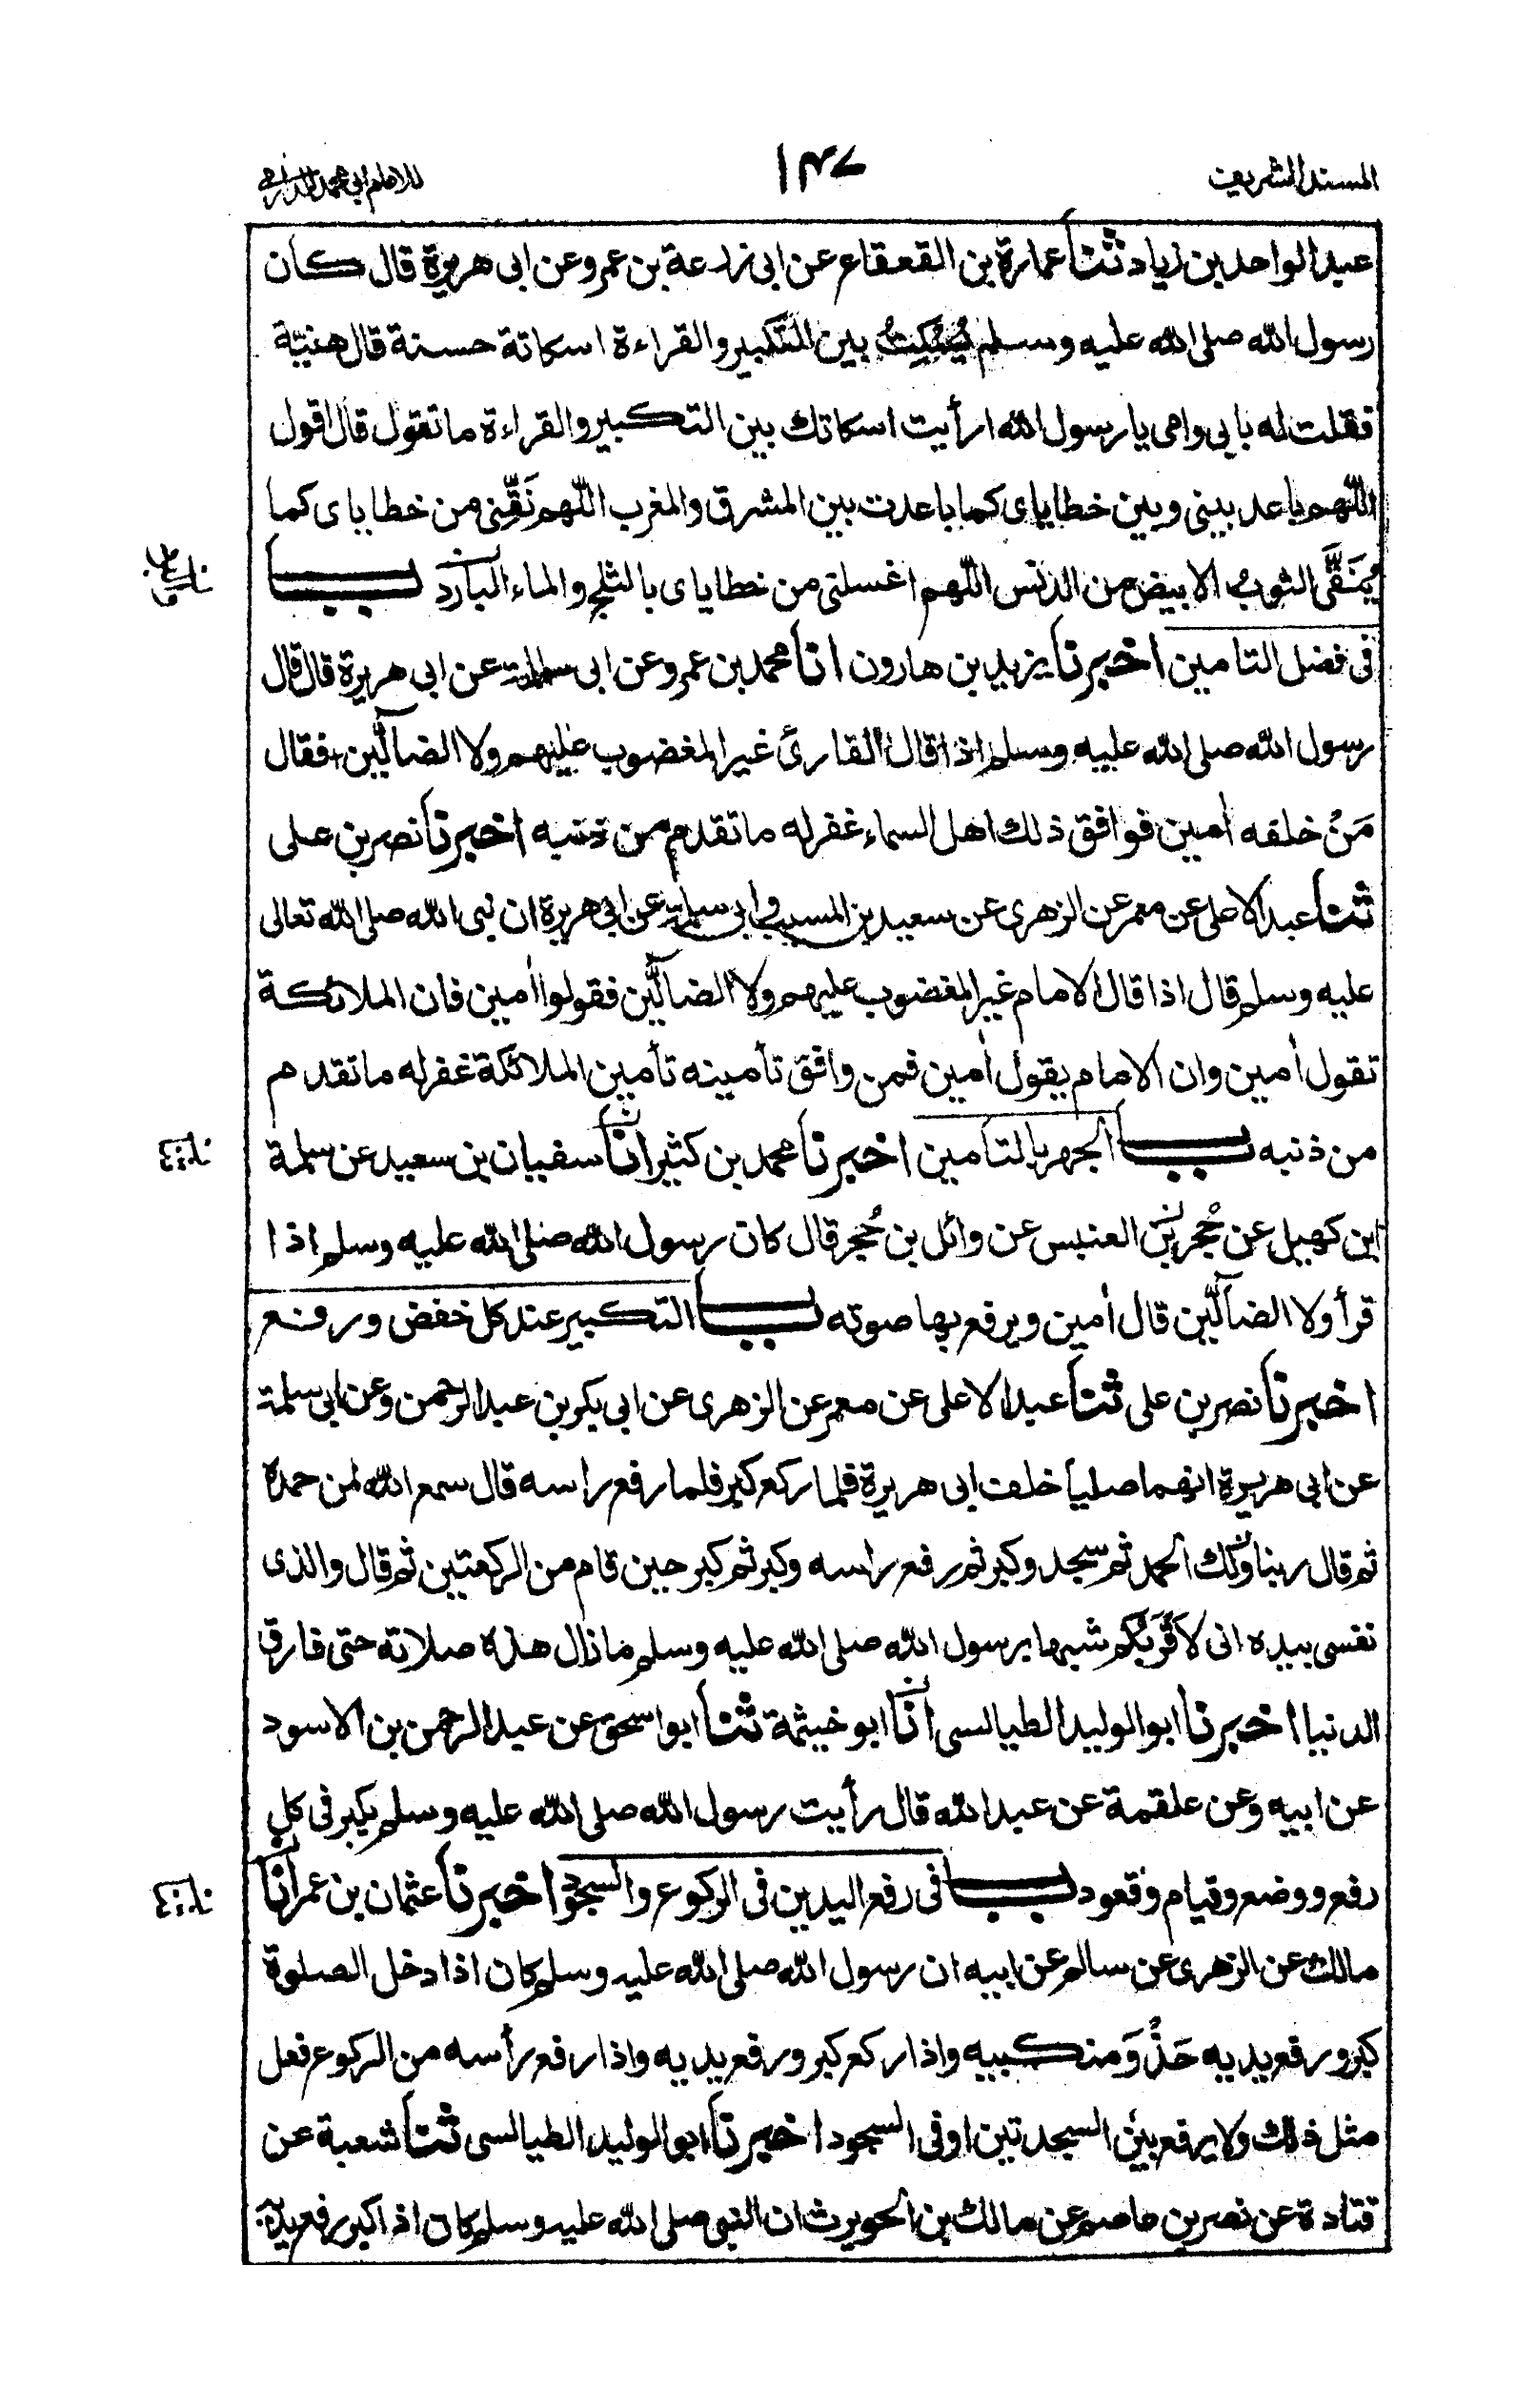 المسند الشريف
١٤٧
للامام ابى محمد الدارمى
عبد الواحد بن زياد ثنا عمارة بن القعقاع عن ابى زرعة بن عمرو عن ابى هريرة قال كان
رسول الله صلى الله عليه وسلم يُسْكِتُ بين التكبير والقراءة اسكاتة حسنة قال هنيّة
فقلت له بابي وامي يا رسول الله ارأيت اسكاتك بين التكبير والقراءة ما تقول قال اقول
اللّهم باعد بيني وبين خطاياى كما باعدت بين المشرق والمغرب اللّهم نَقِّني من خطاياى كما
يُنَقَّى الثوبُ الابيض من الدنس اللّهم اغسلني من خطاياى بالثلج والماء البارد باب
فى فضل التامين اخبرنا يزيد بن هارون انا محمد بن عمرو عن ابى سلمة عن ابي هريرة قال قال
رسول الله صلى الله عليه وسلم اذا قال القارئ غير المغضوب عليهم ولا الضآلّين فقال
مَنْ خلفه اٰمين فوافق ذلك اهل السماء غفر له ما تقدم من ذنبه اخبرنا نصر بن على
ثنا عبد الاعلى عن معمر عن الزهرى عن سعيد بن المسيب وابى سلمة عن ابي هريرة ان نبى الله صلى الله تعالى
عليه وسلم قال اذا قال الامام غير المغضوب عليهم ولا الضآلّين فقولوا اٰمين فان الملائكة
تقول اٰمين وان الامام يقول اٰمين فمن وافق تأمينه تأمين الملائكة غفر له ما تقدم
من ذنبه باب الجهر بالتامين اخبرنا محمد بن كثير انا سفيان بن سعيد عن سلمة
ابن كهيل عن حُجر بن العنبس عن وائل بن حُجر قال كان رسول الله صلى الله عليه وسلم اذا
قرأ ولا الضآلّين قال اٰمين ويرفع بها صوته باب التكبير عند كل خفض ورفع
اخبرنا نصر بن على ثنا عبد الاعلى عن معمر عن الزهرى عن ابي بكر بن عبد الرحمن وعن ابى سلمة
عن ابي هريرة انهما صليا خلف ابى هريرة فلما ركع كبر فلما رفع راسه قال سمع الله لمن حمده
ثم قال ربنا ولك الحمد ثم سجد وكبر ثم رفع راسه وكبر ثم كبر حين قام من الركعتين ثم قال والذى
نفسى بيده انى لاَقْرَبُكم شبها برسول الله صلى الله عليه وسلم ما زال هذه صلاته حتى فارق
الدنيا اخبرنا ابو الوليد الطيالسى انا ابو خيثمة ثنا ابو اسحق عن عبد الرحمن بن الاسود
عن ابيه وعن علقمة عن عبد الله قال رأيت رسول الله صلى الله عليه وسلم يكبر فى كل
رفع ووضع وقيام وقعود باب فى رفع اليدين فى الركوع والسجود اخبرنا عثمان بن عمر انا
مالك عن الزهرى عن سالم عن ابيه ان رسول الله صلى الله عليه وسلم كان اذا دخل الصلوة
كبر ورفع يديه حَذْوَ منكبيه واذا ركع كبر ورفع يديه واذا رفع رأسه من الركوع فعل
مثل ذلك ولا يرفع بين السجدتين او فى السجود اخبرنا ابو الوليد الطيالسى ثنا شعبة عن
قتادة عن نصر بن عاصم عن مالك بن الحويرث ان النبى صلى الله عليه وسلم كان اذا كبر رفع يديه